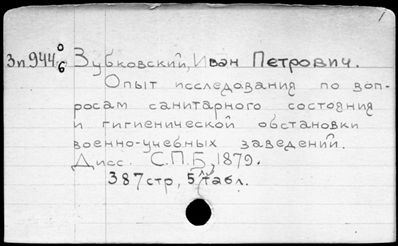 Зп944 0/6 Зубковский, Иван Петрович.
Опыт исследования по воп-
росам санитарного состояния
и гигиенической обстановки
военно-учебных заведений.
Дисс. С.П.Б, 1879.
387стр, 5 л табл.